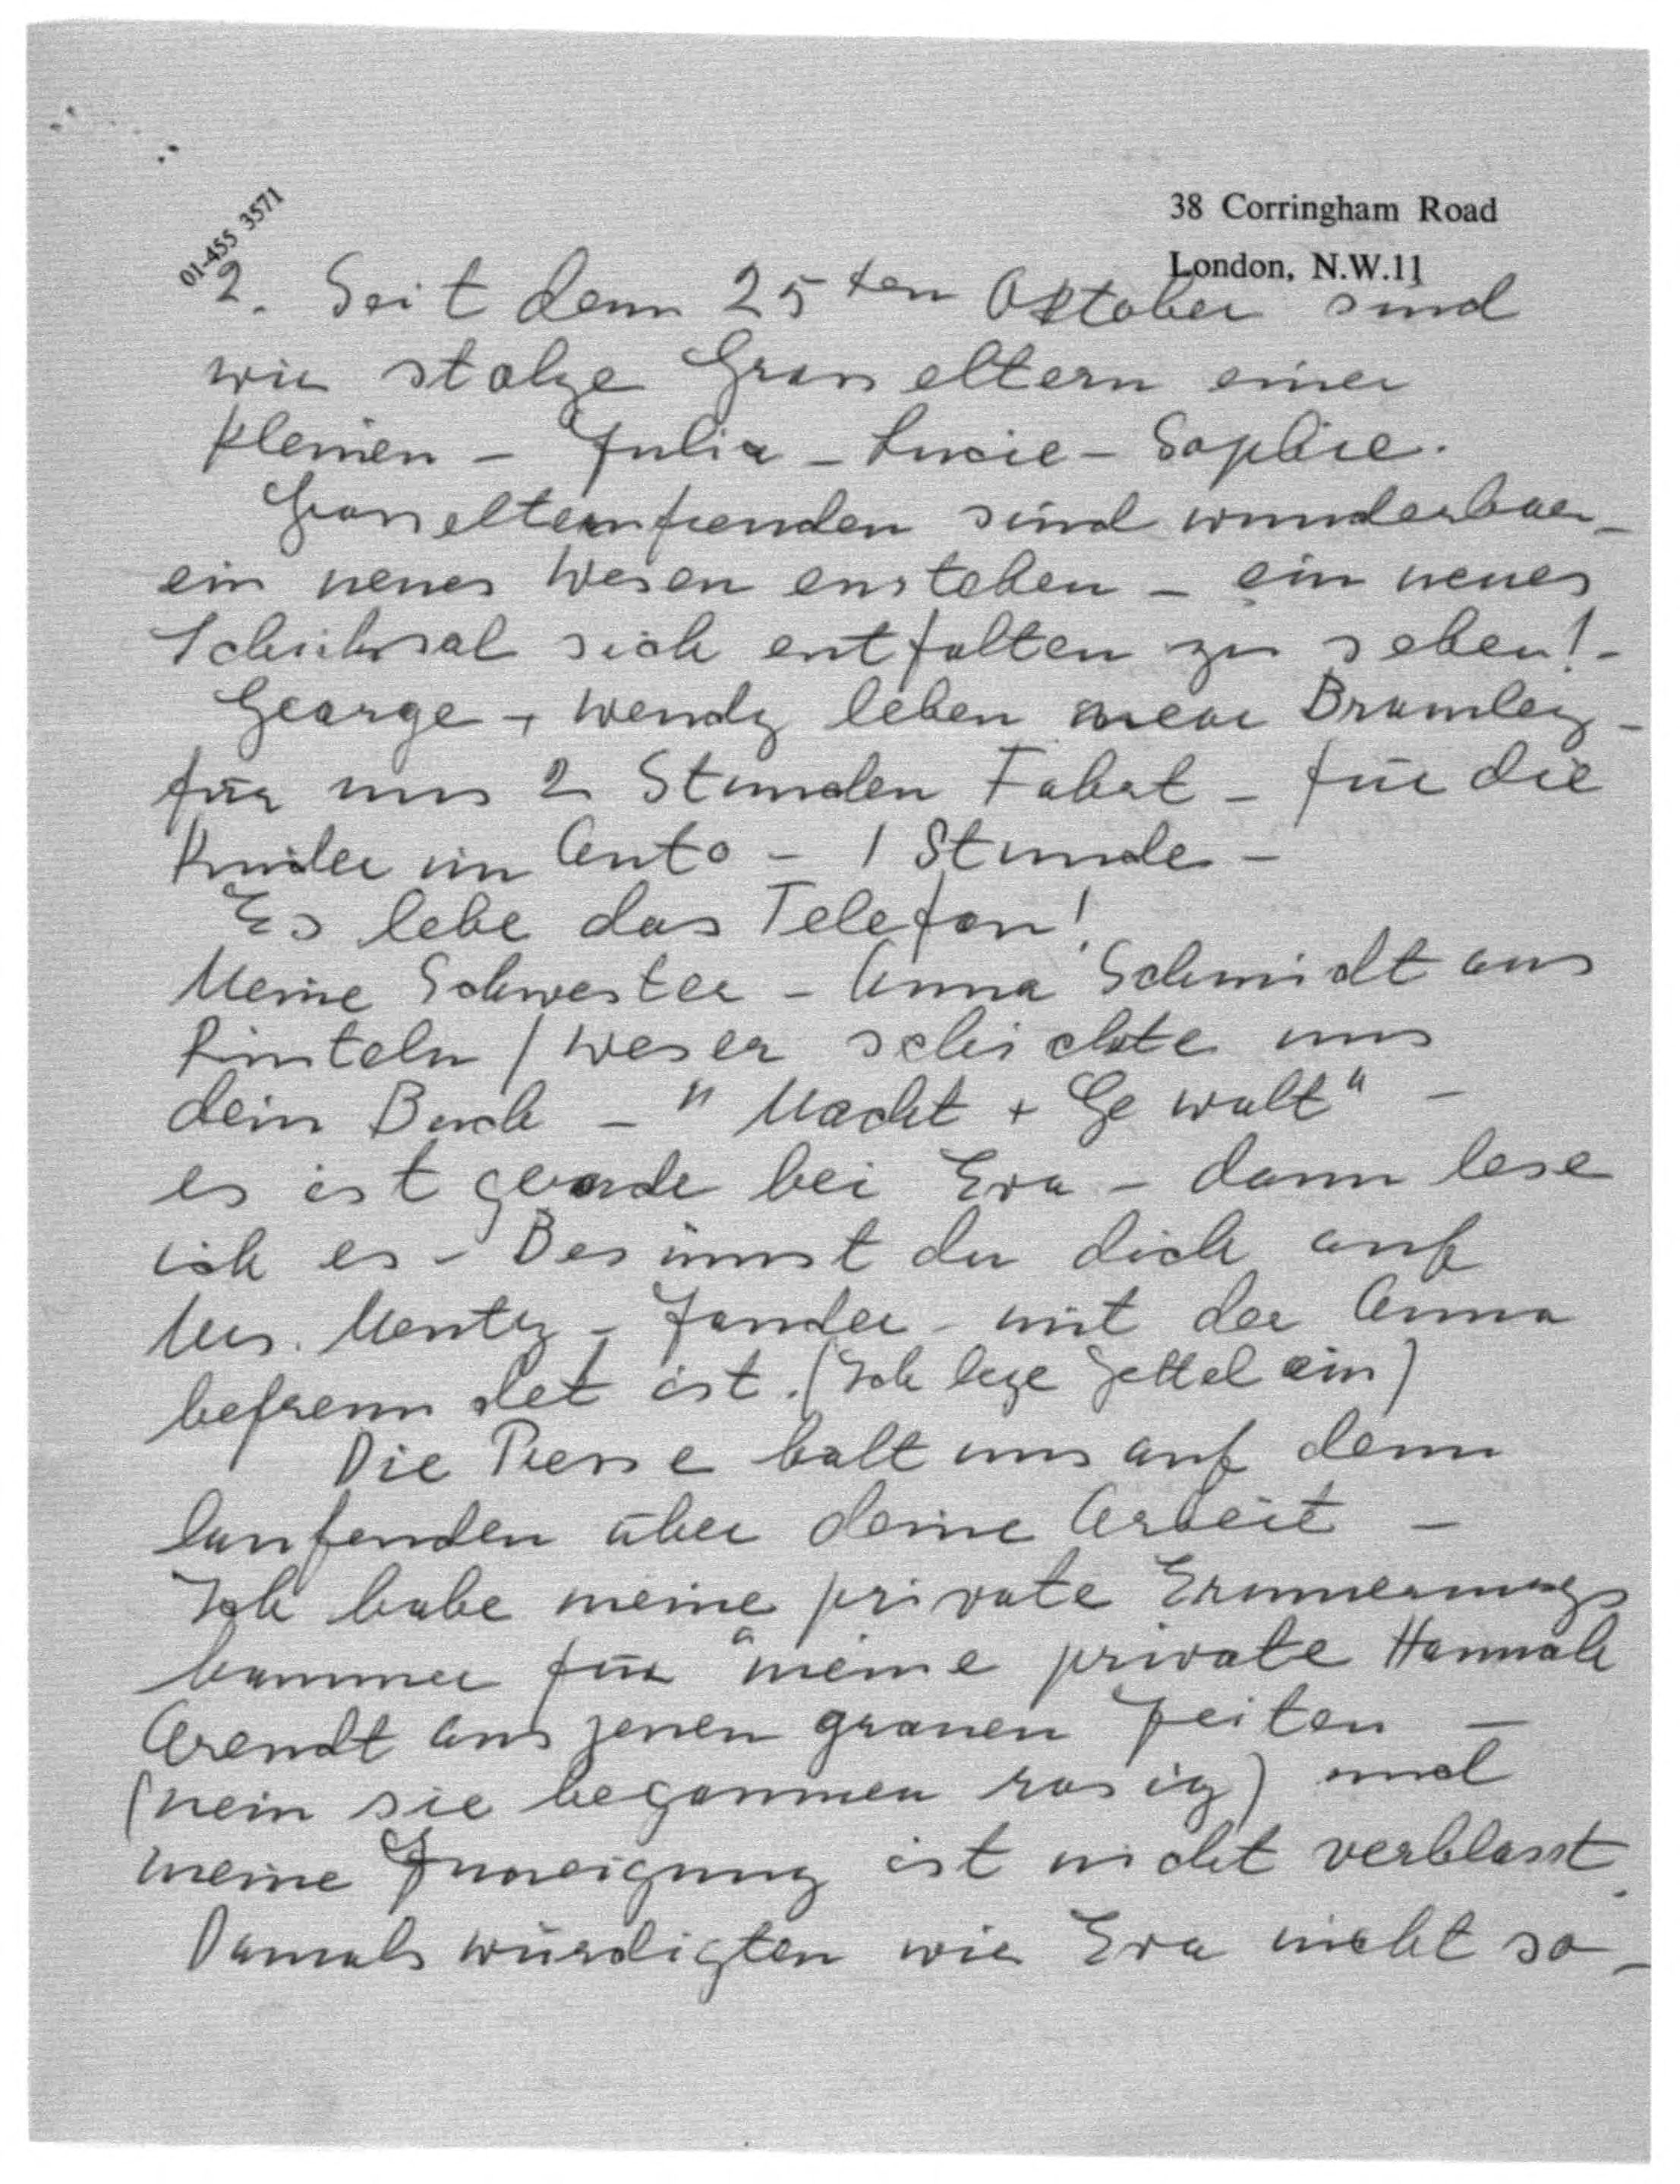 01-455 3571
38 Corringham Road
London, N.W.11
2. Seit dem 25ten Oktober sind
wir stolze Grosseltern einer
kleinen – Julia – Lucie – Sophie.
Grosselternfreuden sind wunderbar –
ein neues Wesen enstehen – ein neues
Schicksal sich entfalten zu sehen! –
George + Wendy leben near Bromley –
für uns 2 Stunden Fahrt – für die
Kinder im Auto – 1 Stunde –
Es lebe das Telefon!
Meine Schwester – Anna Schmidt aus
Rinteln / Weser schickte uns
dein Buch – "Macht + Gewalt" –
es ist gerade bei Eva – dann lese
ich es – Besinnst du dich auf
Mrs. Mentz – Jander – mit der Anna
befreundet ist. (Ich lege Zettel ein)
Die Presse halt uns auf dem
laufenden über deine Arbeit –
Ich habe meine private Erinnerungs
kammer für "meine private Hannah
Arendt aus jenen grauen Zeiten –
(nein sie begannen rosig) und
meine Zuneigung ist nicht verblasst.
Damals würdigten wir Eva nicht so –